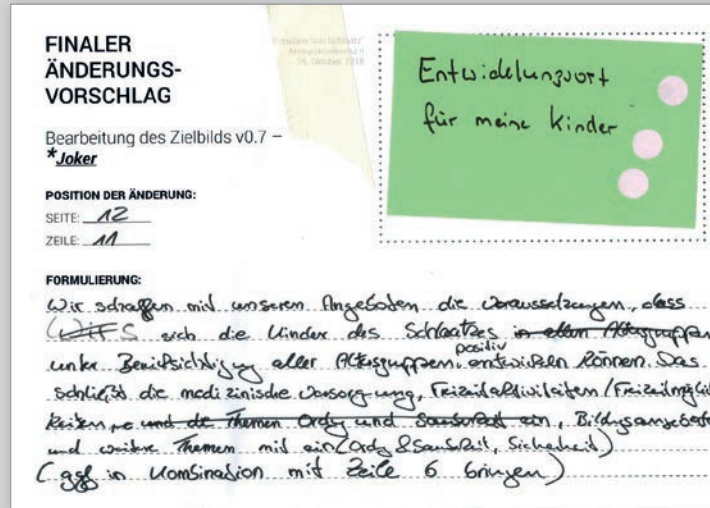 FINALER
ÄNDERUNGS-
VORSCHLAG
Bearbeitung des Zielbilds v0.7 –
*Joker
POSITION DER ÄNDERUNG:
SEITE: 12
ZEILE: 11
Entwickelungsort
für meine Kinder
FORMULIERUNG:
Wir schaffen mit unseren Angeboten die Voraussetzungen, dass
sich die Kinder des Schlaatzes in allen Altersgruppen
unter Berücksichtigung aller Altersgruppen positiv entwickeln können. Das
schließt die medizinische Versorgung, Freizeitaktivitäten/Freizeitmöglich
keiten, und die Themen Ordg und Sauberkeit ein, Bildungsangebote
und weitere Themen mit ein (Ordg & Sauberkeit, Sicherheit)
(ggf in Kombination mit Zeile 6 bringen)